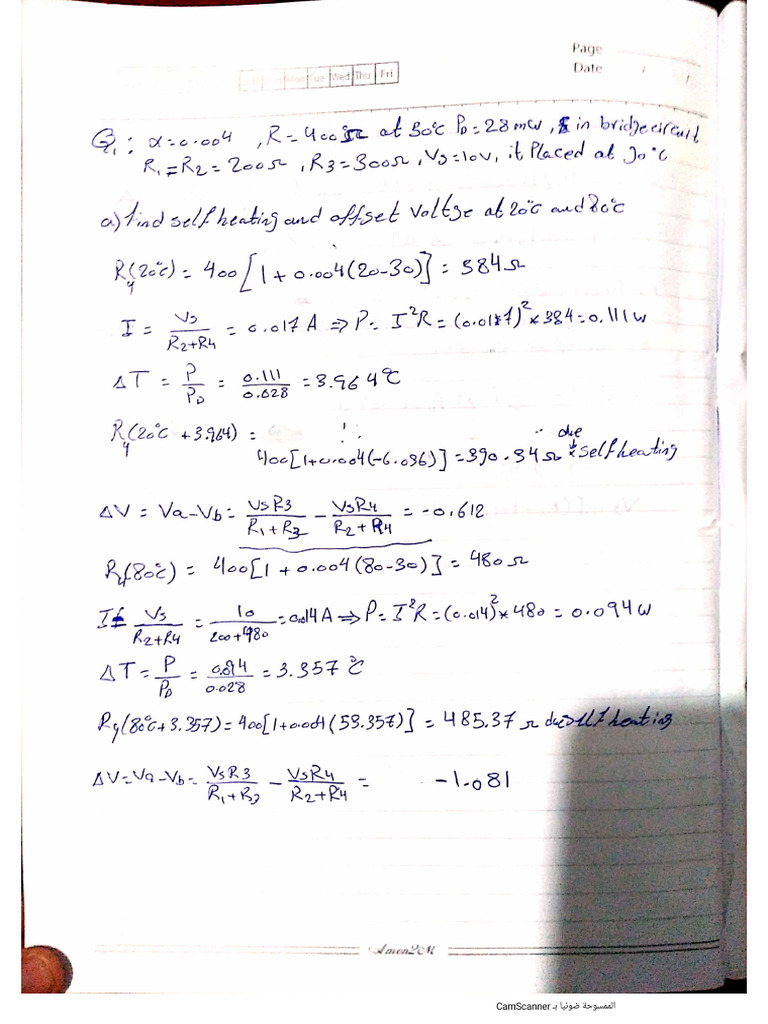 Page
Date / /
Mon Tue Wed Thu Fri
Q1: α=0.004 , R=400Ω at 30°C PD=28mW, in bridge circuit
R1=R2=200Ω , R3=300Ω , Vs=10V, it Placed at 30°C
a) find self heating and offset Voltge at 20°C and 80°C
R4(20°C) = 400 [1+0.004(20-30)] = 384Ω
I = Vs/(R2+R4) = 0.017A ⇒ P = I²R = (0.017)² * 384 = 0.111W
ΔT = P/PD = 0.111/0.028 = 3.964°C
R4(20°C + 3.964) =
400[1+0.004(-6.036)] = 390.34Ω due self heating
ΔV = Va-Vb = VsR3/(R1+R3) - VsR4/(R2+R4) = -0.612
R4(80°C) = 400[1+0.004(80-30)] = 480Ω
I = Vs/(R2+R4) = 10/(200+480) = 0.014A ⇒ P = I²R = (0.014)² * 480 = 0.094W
ΔT = P/PD = 0.094/0.028 = 3.357°C
R4(80°C+3.357) = 400[1+0.004(53.357)] = 485.37Ω due self heating
ΔV = Va-Vb = VsR3/(R1+R3) - VsR4/(R2+R4) = -1.081
Amen2M
الممسوحة ضوئيا بـ CamScanner